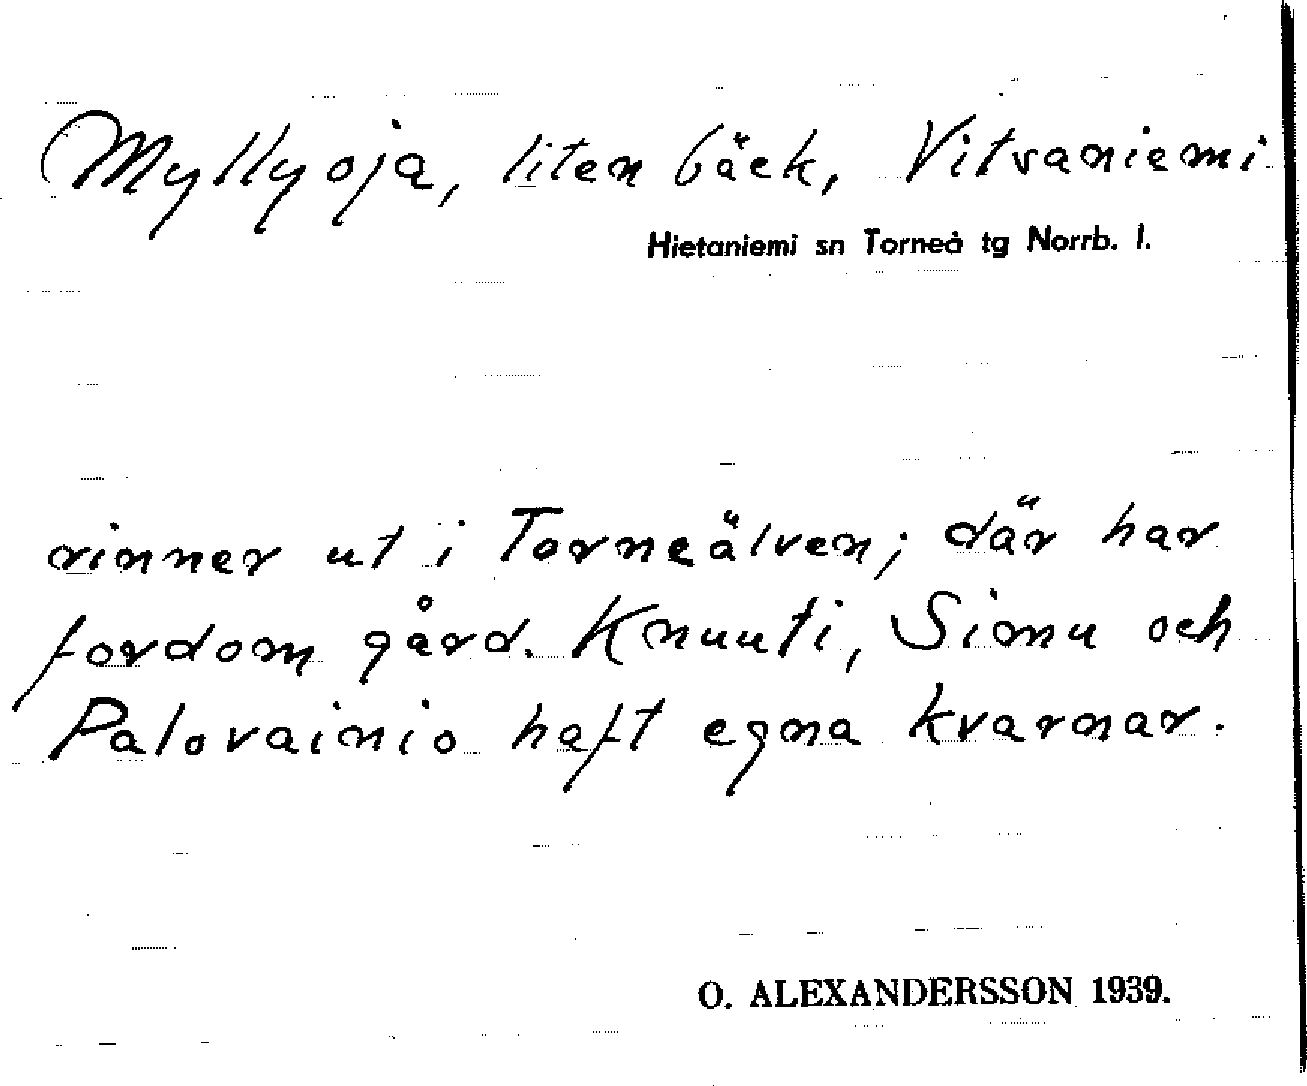 Myllyoja, liten bäck, Vitvaniemi
Hietaniemi sn Torneå tg Norrb. l.
rinner ut i Torneälven; där har
fordom gård. Knuuti, Simu och
Palovainio haft egna kvarnar.
O. ALEXANDERSSON 1939.